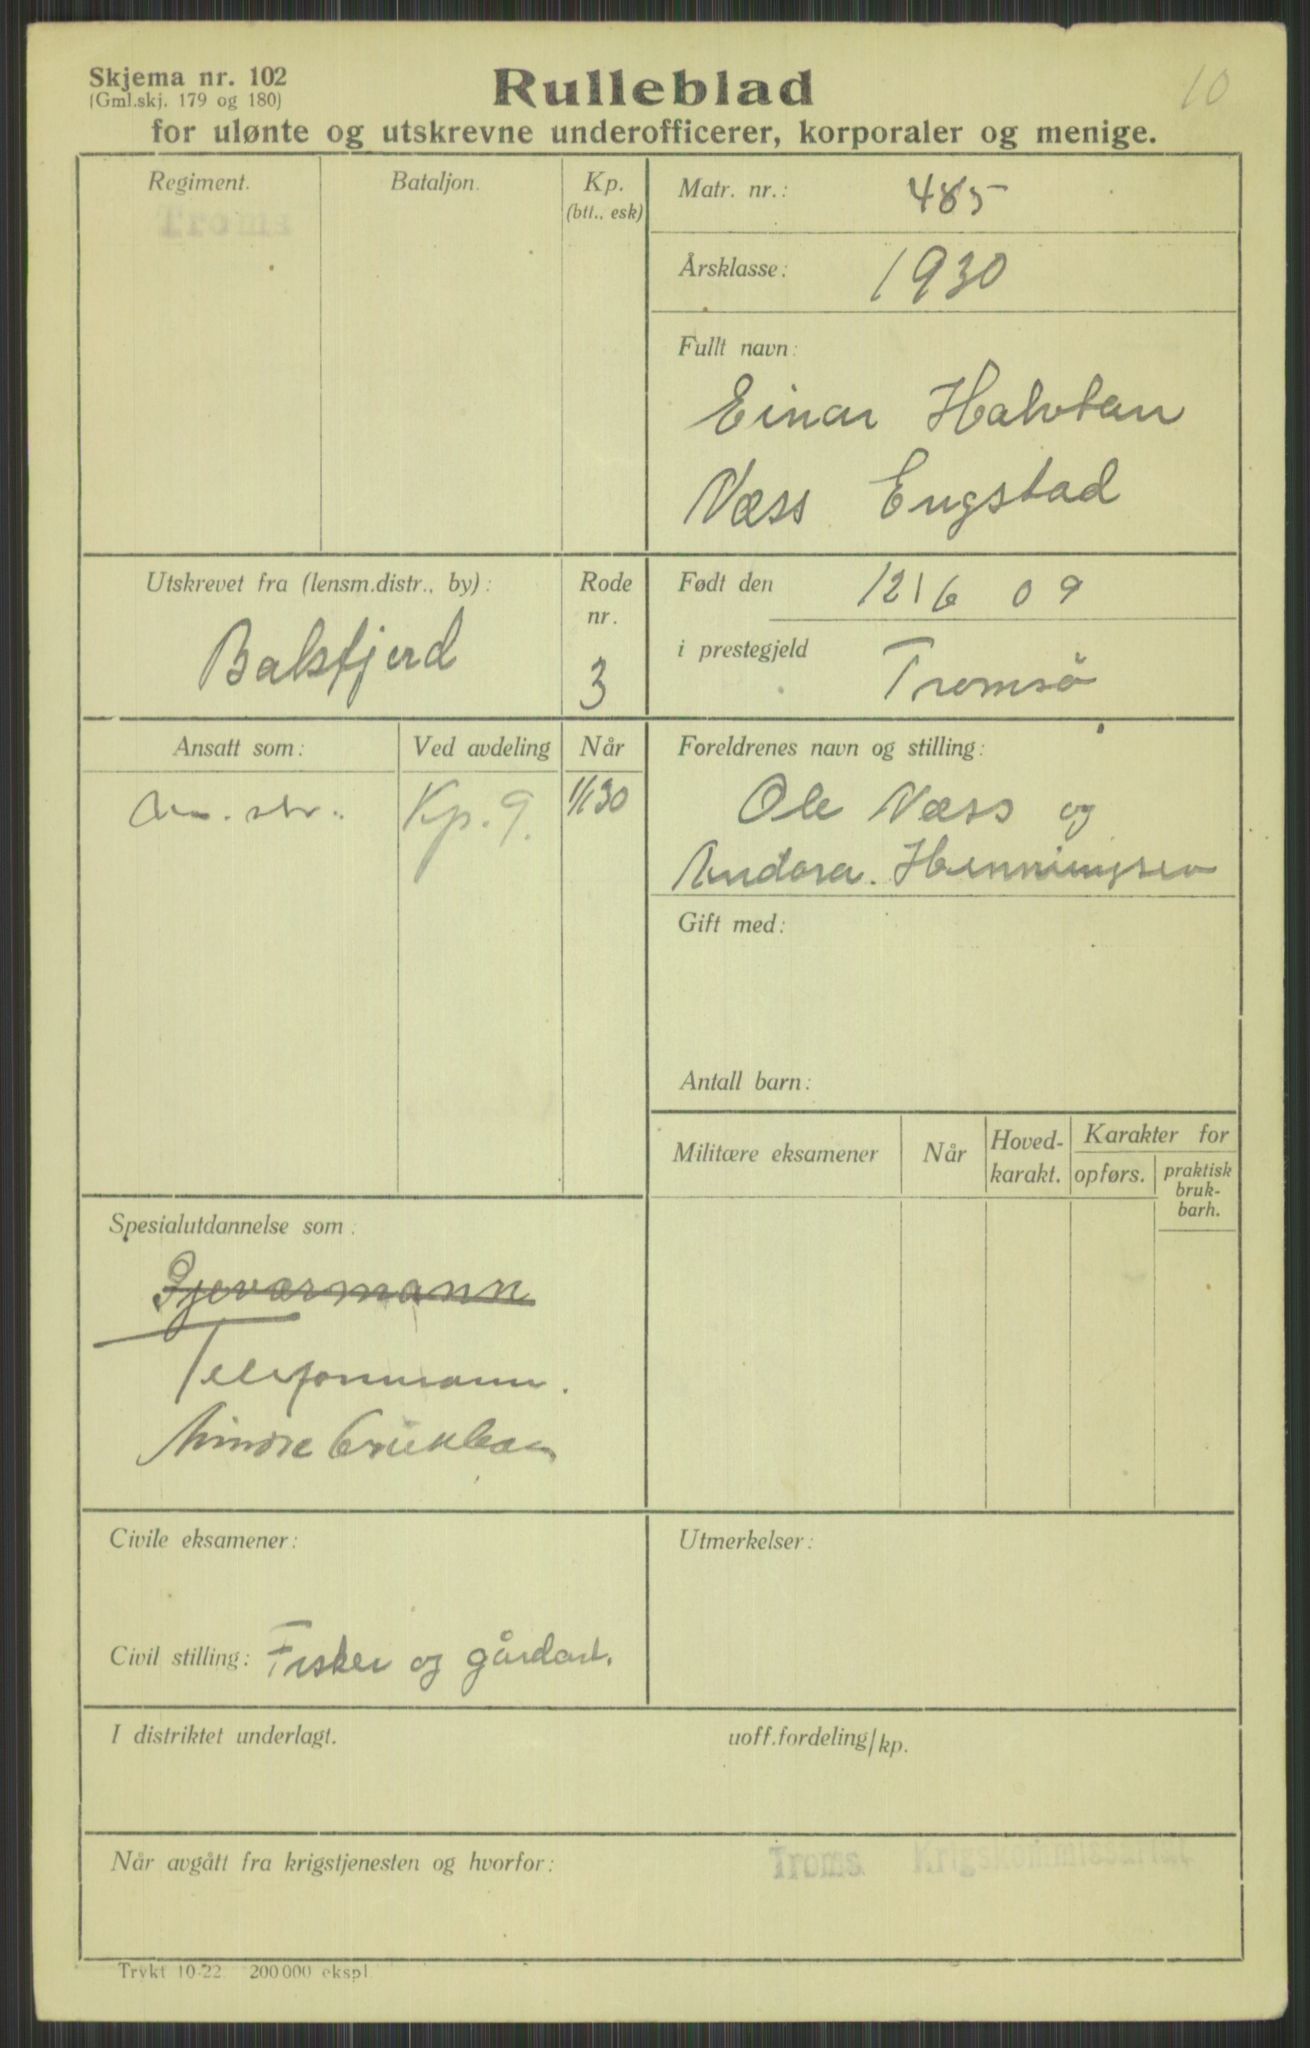 Skjema nr. 102
(Gml.skj. 179 og 180)
Rulleblad
10
for ulønte og utskrevne underofficerer, korporaler og menige.
Regiment.
Troms
Bataljon.
Kp.
(btt., esk)
Matr. nr.: 485
Årsklasse: 1930
Fullt navn:
Einar Halvtan
Næss Engstad
Utskrevet fra (lensm.distr., by):
Balsfjord
Rode
nr.
3
Født den 12/6 09
i prestegjeld Tromsö
Ansatt som: Ved avdeling Når
Kp. 9. 1/1 30
Foreldrenes navn og stilling:
Ole Næss og
Andora. Henningsen
Gift med:
Antall barn:
Militære eksamener
Når
Hoved-
karakt.
Karakter for
opførs.
praktisk
bruk-
barh.
Spesialutdannelse som:
Gjeværmann
Telefonmann.
Mindre
Civile eksamener:
Civil stilling: Fisker og gårdarb.
Utmerkelser:
I distriktet underlagt.
uoff.fordeling/kp.
Når avgått fra krigstjenesten og hvorfor:
Troms Krigskommissariat
Trykt 10-22. 200 000 ekspl.